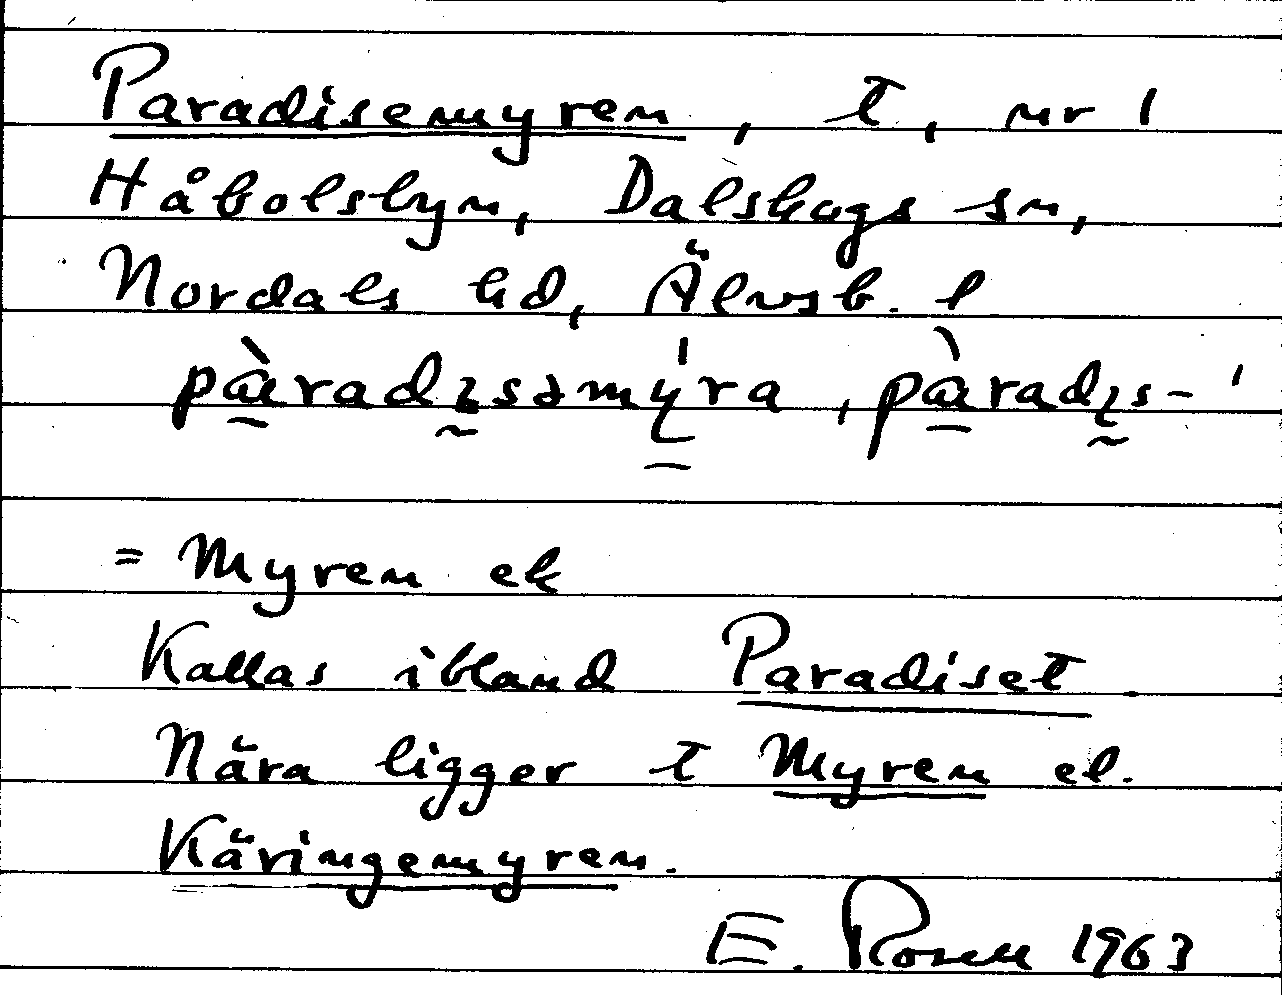 Paradisemyren, t, nr 1
Håbolsbyn, Dalskogs sn,
Nordals hd, Älvsb. l
pàradɪsəmýra, pàradɪs- '
= Myren ek
Kallas ibland Paradiset.
Nära ligger t Myren el.
Käringemyren.
E. Rosell 1963